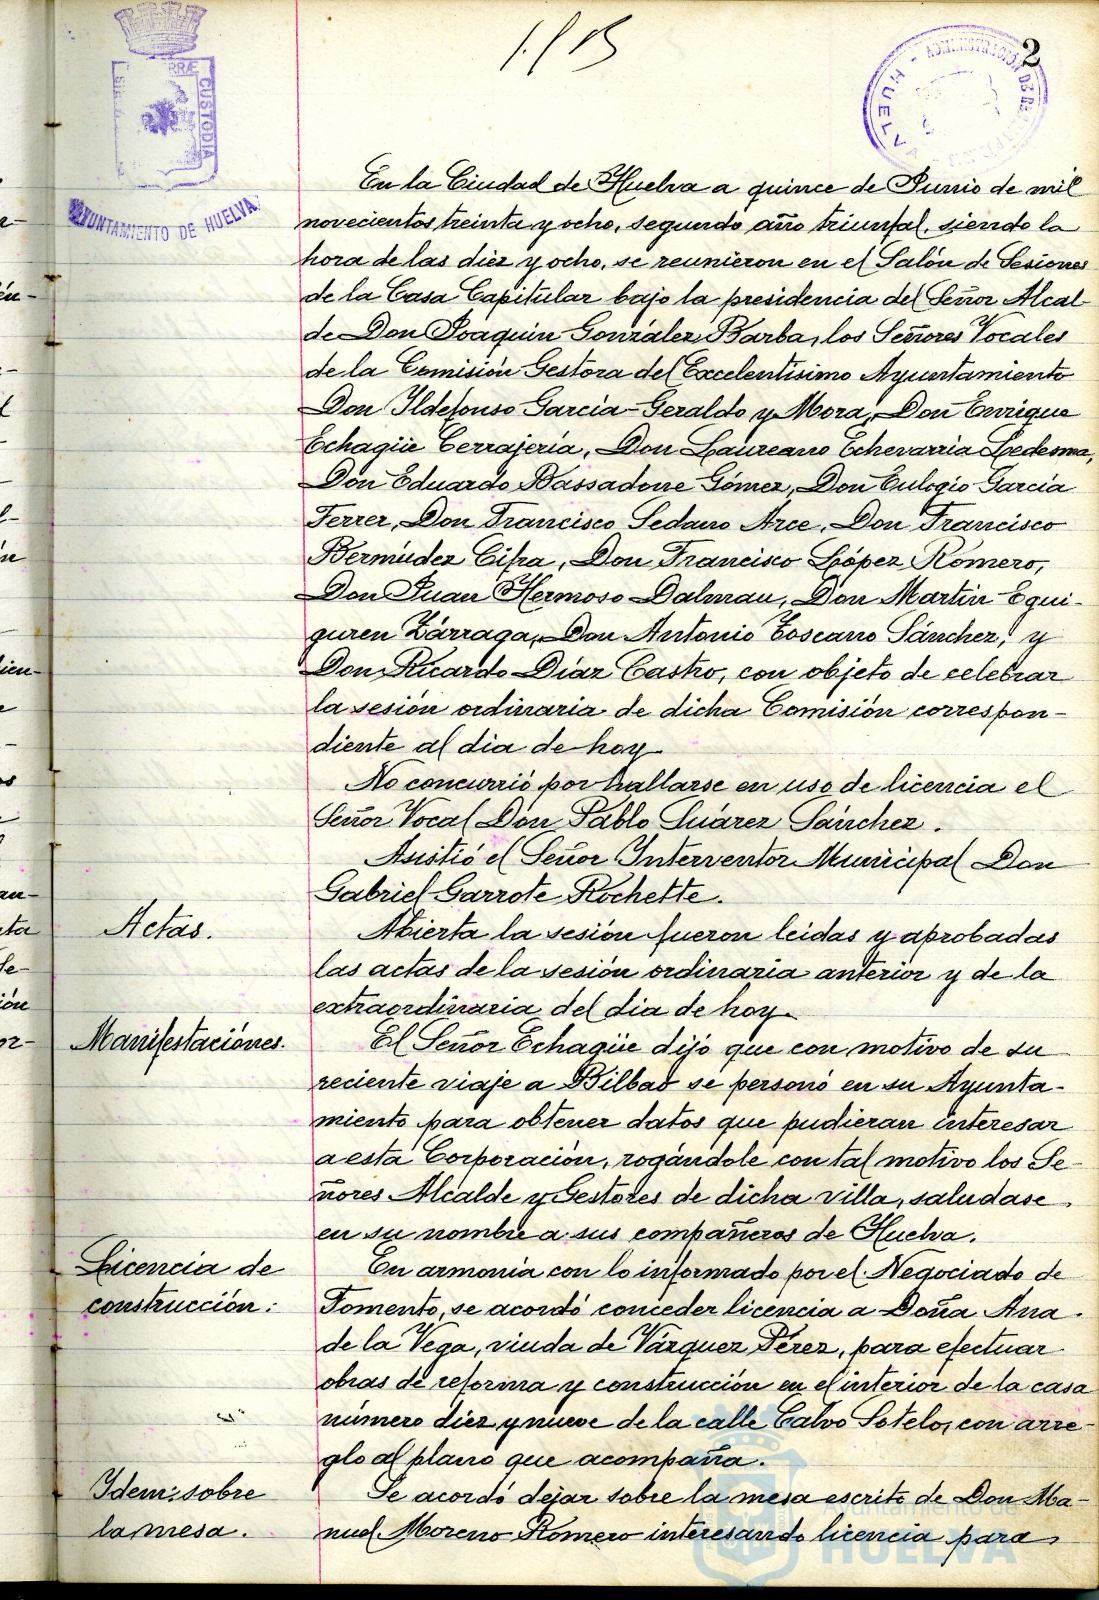 1/15
2
ADMINISTRACIÓN DE
HUELVA
RRÆ
CUSTODIA
AYUNTAMIENTO DE HUELVA
En la Ciudad de Huelva a quince de Junio de mil
novecientos treinta y ocho, segundo año triunfal, siendo la
hora de las diez y ocho, se reunieron en el Salón de Sesiones
de la Casa Capitular bajo la presidencia del Señor Alcal-
de Don Joaquin González Barba, los Señores Vocales
de la Comisión Gestora del Excelentísimo Ayuntamiento
Don Ildefonso García-Geraldo y Mora, Don Enrique
Echagüe Cerrajería, Don Laureano Echevarría Ledesma,
Don Eduardo Bassadone Gómez, Don Eulogio García
Ferrer, Don Francisco Sedano Arce, Don Francisco
Bermúdez Cifra, Don Francisco López Romero,
Don Juan Hermoso Dalmau, Don Martín Egui-
guren Zárraga, Don Antonio Toscano Sánchez, y
Don Ricardo Díaz Castro, con objeto de celebrar
la sesión ordinaria de dicha Comisión correspon-
diente al dia de hoy.
No concurrió por hallarse en uso de licencia el
Señor Vocal Don Pablo Suárez Sánchez.
Asistió el Señor Interventor Municipal Don
Gabriel Garrote Rochette.
Actas.
Abierta la sesión fueron leidas y aprobadas
las actas de la sesión ordinaria anterior y de la
extraordinaria del dia de hoy.
Manifestaciónes.
El Señor Echagüe dijó que con motivo de su
reciente viaje a Bilbao se personó en su Ayunta-
miento para obtener datos que pudieran interesar
a esta Corporación, rogándole con tal motivo los Se-
ñores Alcalde y Gestores de dicha villa, saludase
en su nombre a sus compañeros de Huelva.
Licencia de
construcción:
En armonia con lo informado por el Negociado de
Fomento, se acordó conceder licencia a Doña Ana
de la Vega, viuda de Vázquez Pérez, para efectuar
obras de reforma y construcción en el interior de la casa
número diez y nueve de la calle Calvo Sotelo, con arre-
glo al plano que acompaña.
Idem: sobre
la mesa.
Se acordó dejar sobre la mesa escrito de Don Ma-
nuel Moreno Romero interesando licencia para
Ayuntamiento de
HUELVA